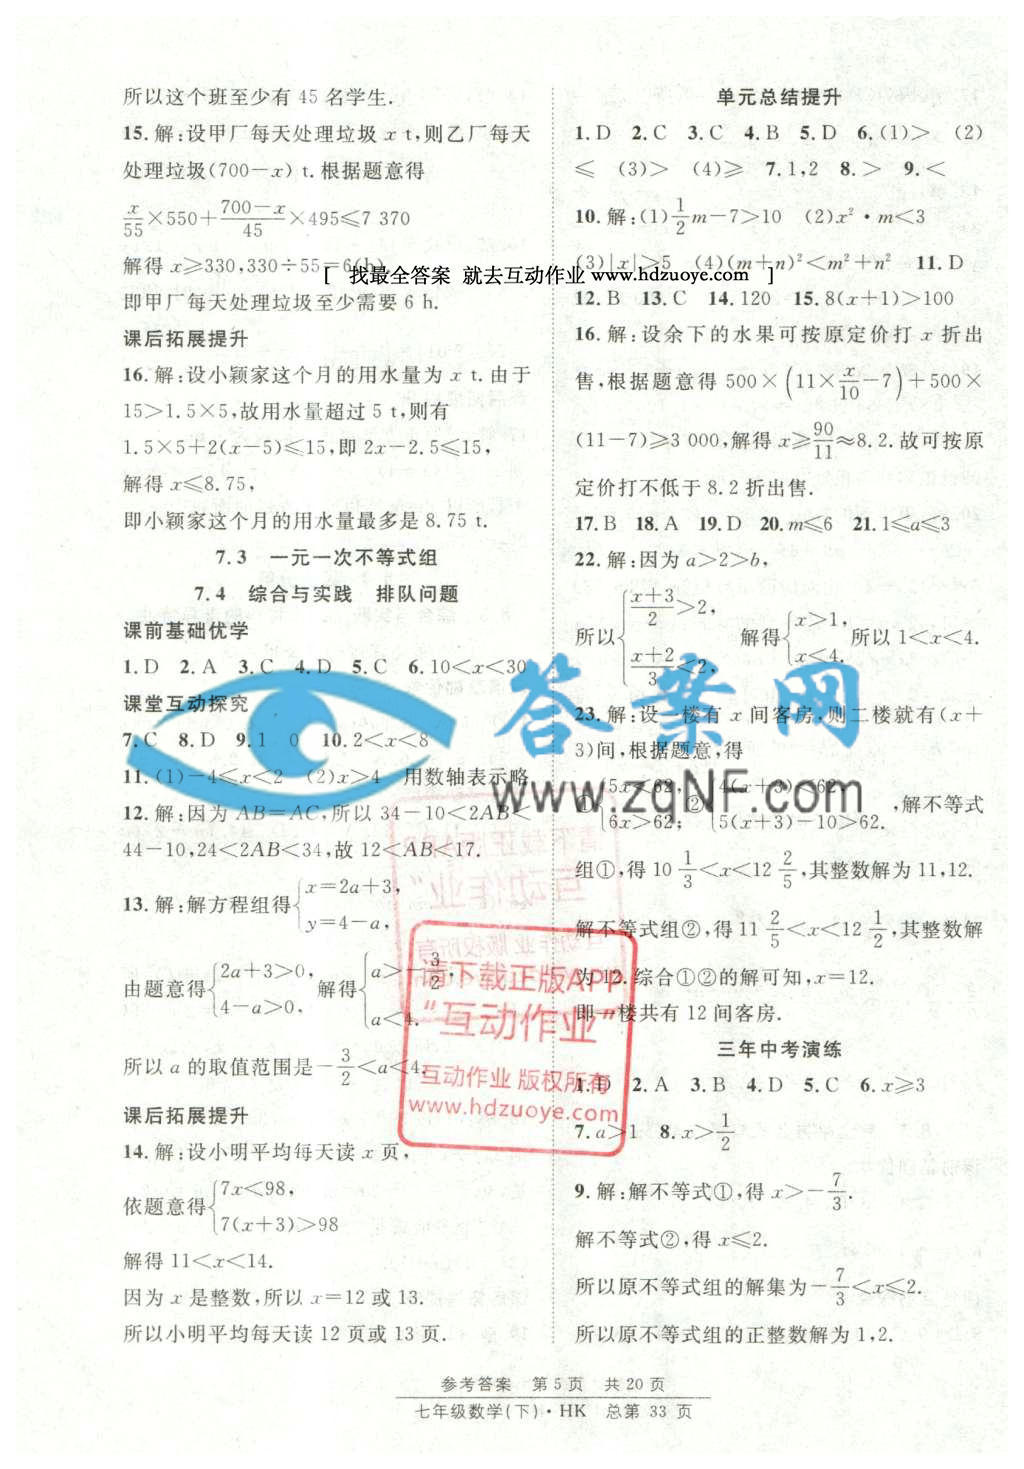 所以这个班至少有 45 名学生.
15.解:设甲厂每天处理垃圾 x t,则乙厂每天
处理垃圾(700-x) t.根据题意得
x/55×550+(700-x)/45×495≤7 370
解得 x≥330,330÷55=6(h)
[ 找最全答案 就去互动作业 www.hdzuoye.com ]
即甲厂每天处理垃圾至少需要 6 h.
课后拓展提升
16.解:设小颖家这个月的用水量为 x t.由于
15>1.5×5,故用水量超过 5 t,则有
1.5×5+2(x-5)≤15,即 2x-2.5≤15,
解得 x≤8.75,
即小颖家这个月的用水量最多是 8.75 t.
7.3 一元一次不等式组
7.4 综合与实践 排队问题
课前基础优学
1.D 2.A 3.C 4.D 5.C 6.10<x<30
课堂互动探究
7.C 8.D 9.1 0 10.2<x<8
11.(1)-4≤x<2 (2)x>4 用数轴表示略
12.解:因为 AB=AC,所以 34-10<2AB<
44-10,24<2AB<34,故 12<AB<17.
13.解:解方程组得{x=2a+3,
y=4-a,
由题意得{2a+3>0,
4-a>0,
解得{a>-3/2,
a<4.
所以 a 的取值范围是-3/2<a<4.
课后拓展提升
14.解:设小明平均每天读 x 页,
依题意得{7x<98,
7(x+3)>98
解得 11<x<14.
因为 x 是整数,所以 x=12 或 13.
所以小明平均每天读 12 页或 13 页.
单元总结提升
1.D 2.C 3.C 4.B 5.D 6.(1)> (2)
≤ (3)> (4)≥ 7.1,2 8.> 9.<
10.解:(1)1/2m-7>10 (2)x²·m<3
(3)|x|>5 (4)(m+n)²<m²+n² 11.D
12.B 13.C 14.120 15.8(x+1)>100
16.解:设余下的水果可按原定价打 x 折出
售,根据题意得 500×(11×x/10-7)+500×
(11-7)≥3 000,解得 x≥90/11≈8.2.故可按原
定价打不低于 8.2 折出售.
17.B 18.A 19.D 20.m≤6 21.1≤a≤3
22.解:因为 a>2>b,
所以{(x+3)/2>2,
(x+2)/3<2,
解得{x>1,
x<4.
所以 1<x<4.
23.解:设一楼有 x 间客房,则二楼就有(x+
3)间,根据题意,得
①{5x<62,
6x>62;
②{4(x+3)<62,
5(x+3)-10>62.
,解不等式
组①,得 10 1/3<x<12 2/5,其整数解为 11,12.
解不等式组②,得 11 2/5<x<12 1/2,其整数解
为 12.综合①②的解可知,x=12.
即一楼共有 12 间客房.
三年中考演练
1.D 2.A 3.B 4.D 5.C 6.x≥3
7.a>1 8.x>1/2
9.解:解不等式①,得 x>-7/3.
解不等式②,得 x≤2.
所以原不等式组的解集为-7/3<x≤2.
所以原不等式组的正整数解为 1,2.
答案网
www.zqNF.com
请下载正版APP
"互动作业"
互动作业 版权所有
www.hdzuoye.com
参考答案 第 5 页 共 20 页
七年级数学(下)·HK 总第 33 页